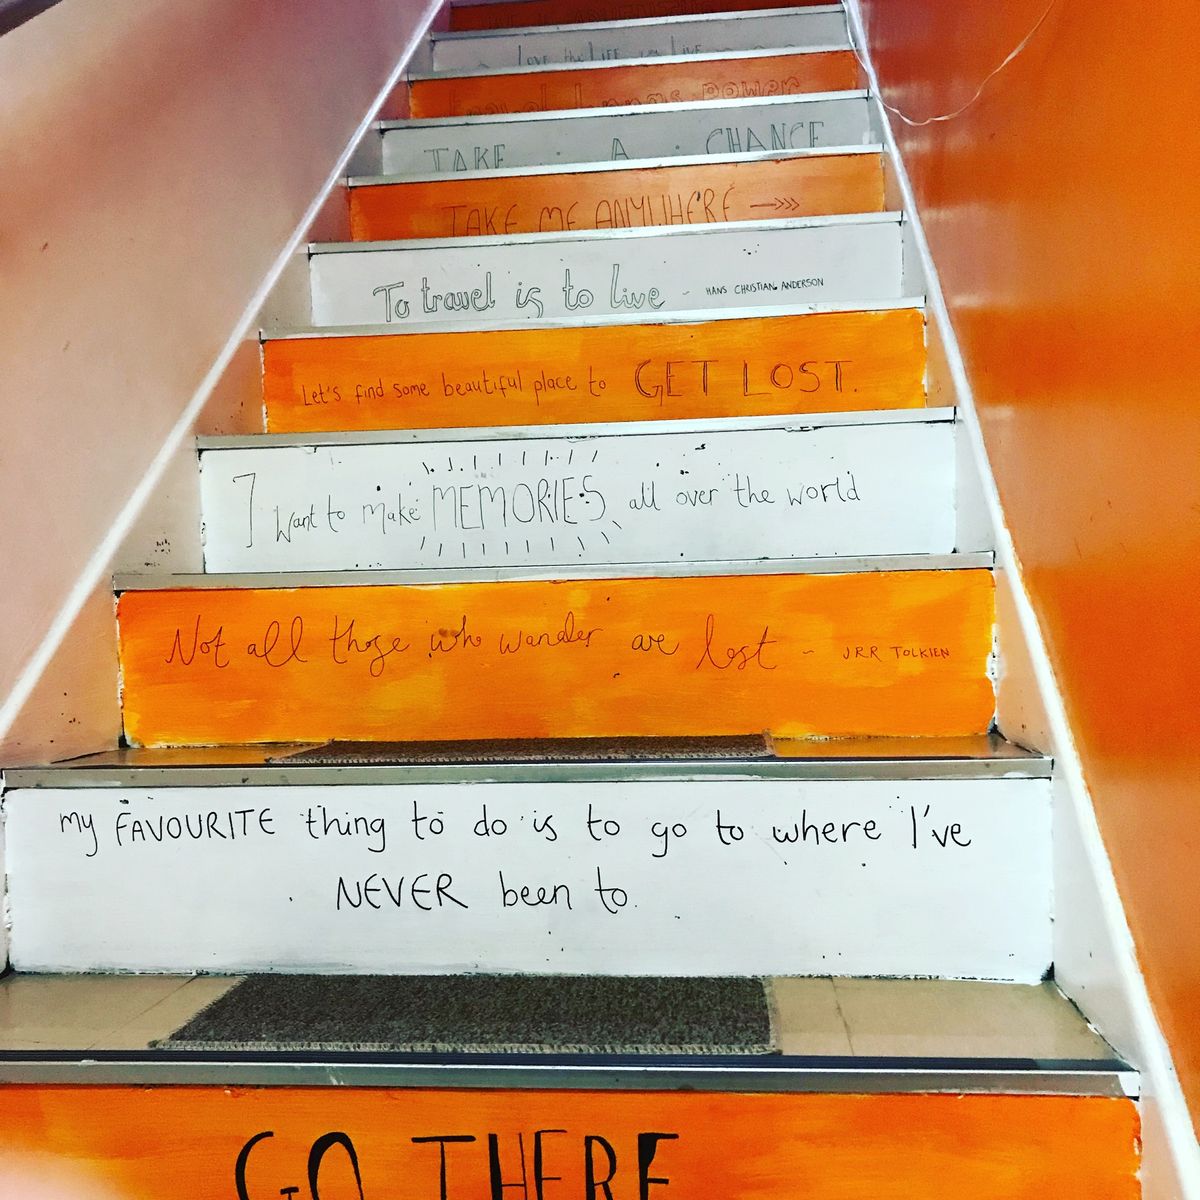 LOVE the LIFE you LIVE
travel brings power
TAKE . A . CHANCE
TAKE ME ANYWHERE
To travel is to live - HANS CHRISTIAN ANDERSON
Let's find some beautiful place to GET LOST.
I want to make MEMORIES all over the world
Not all those who wander are lost - JRR TOLKIEN
my FAVOURITE thing to do is to go to where I've
NEVER been to.
GO THERE